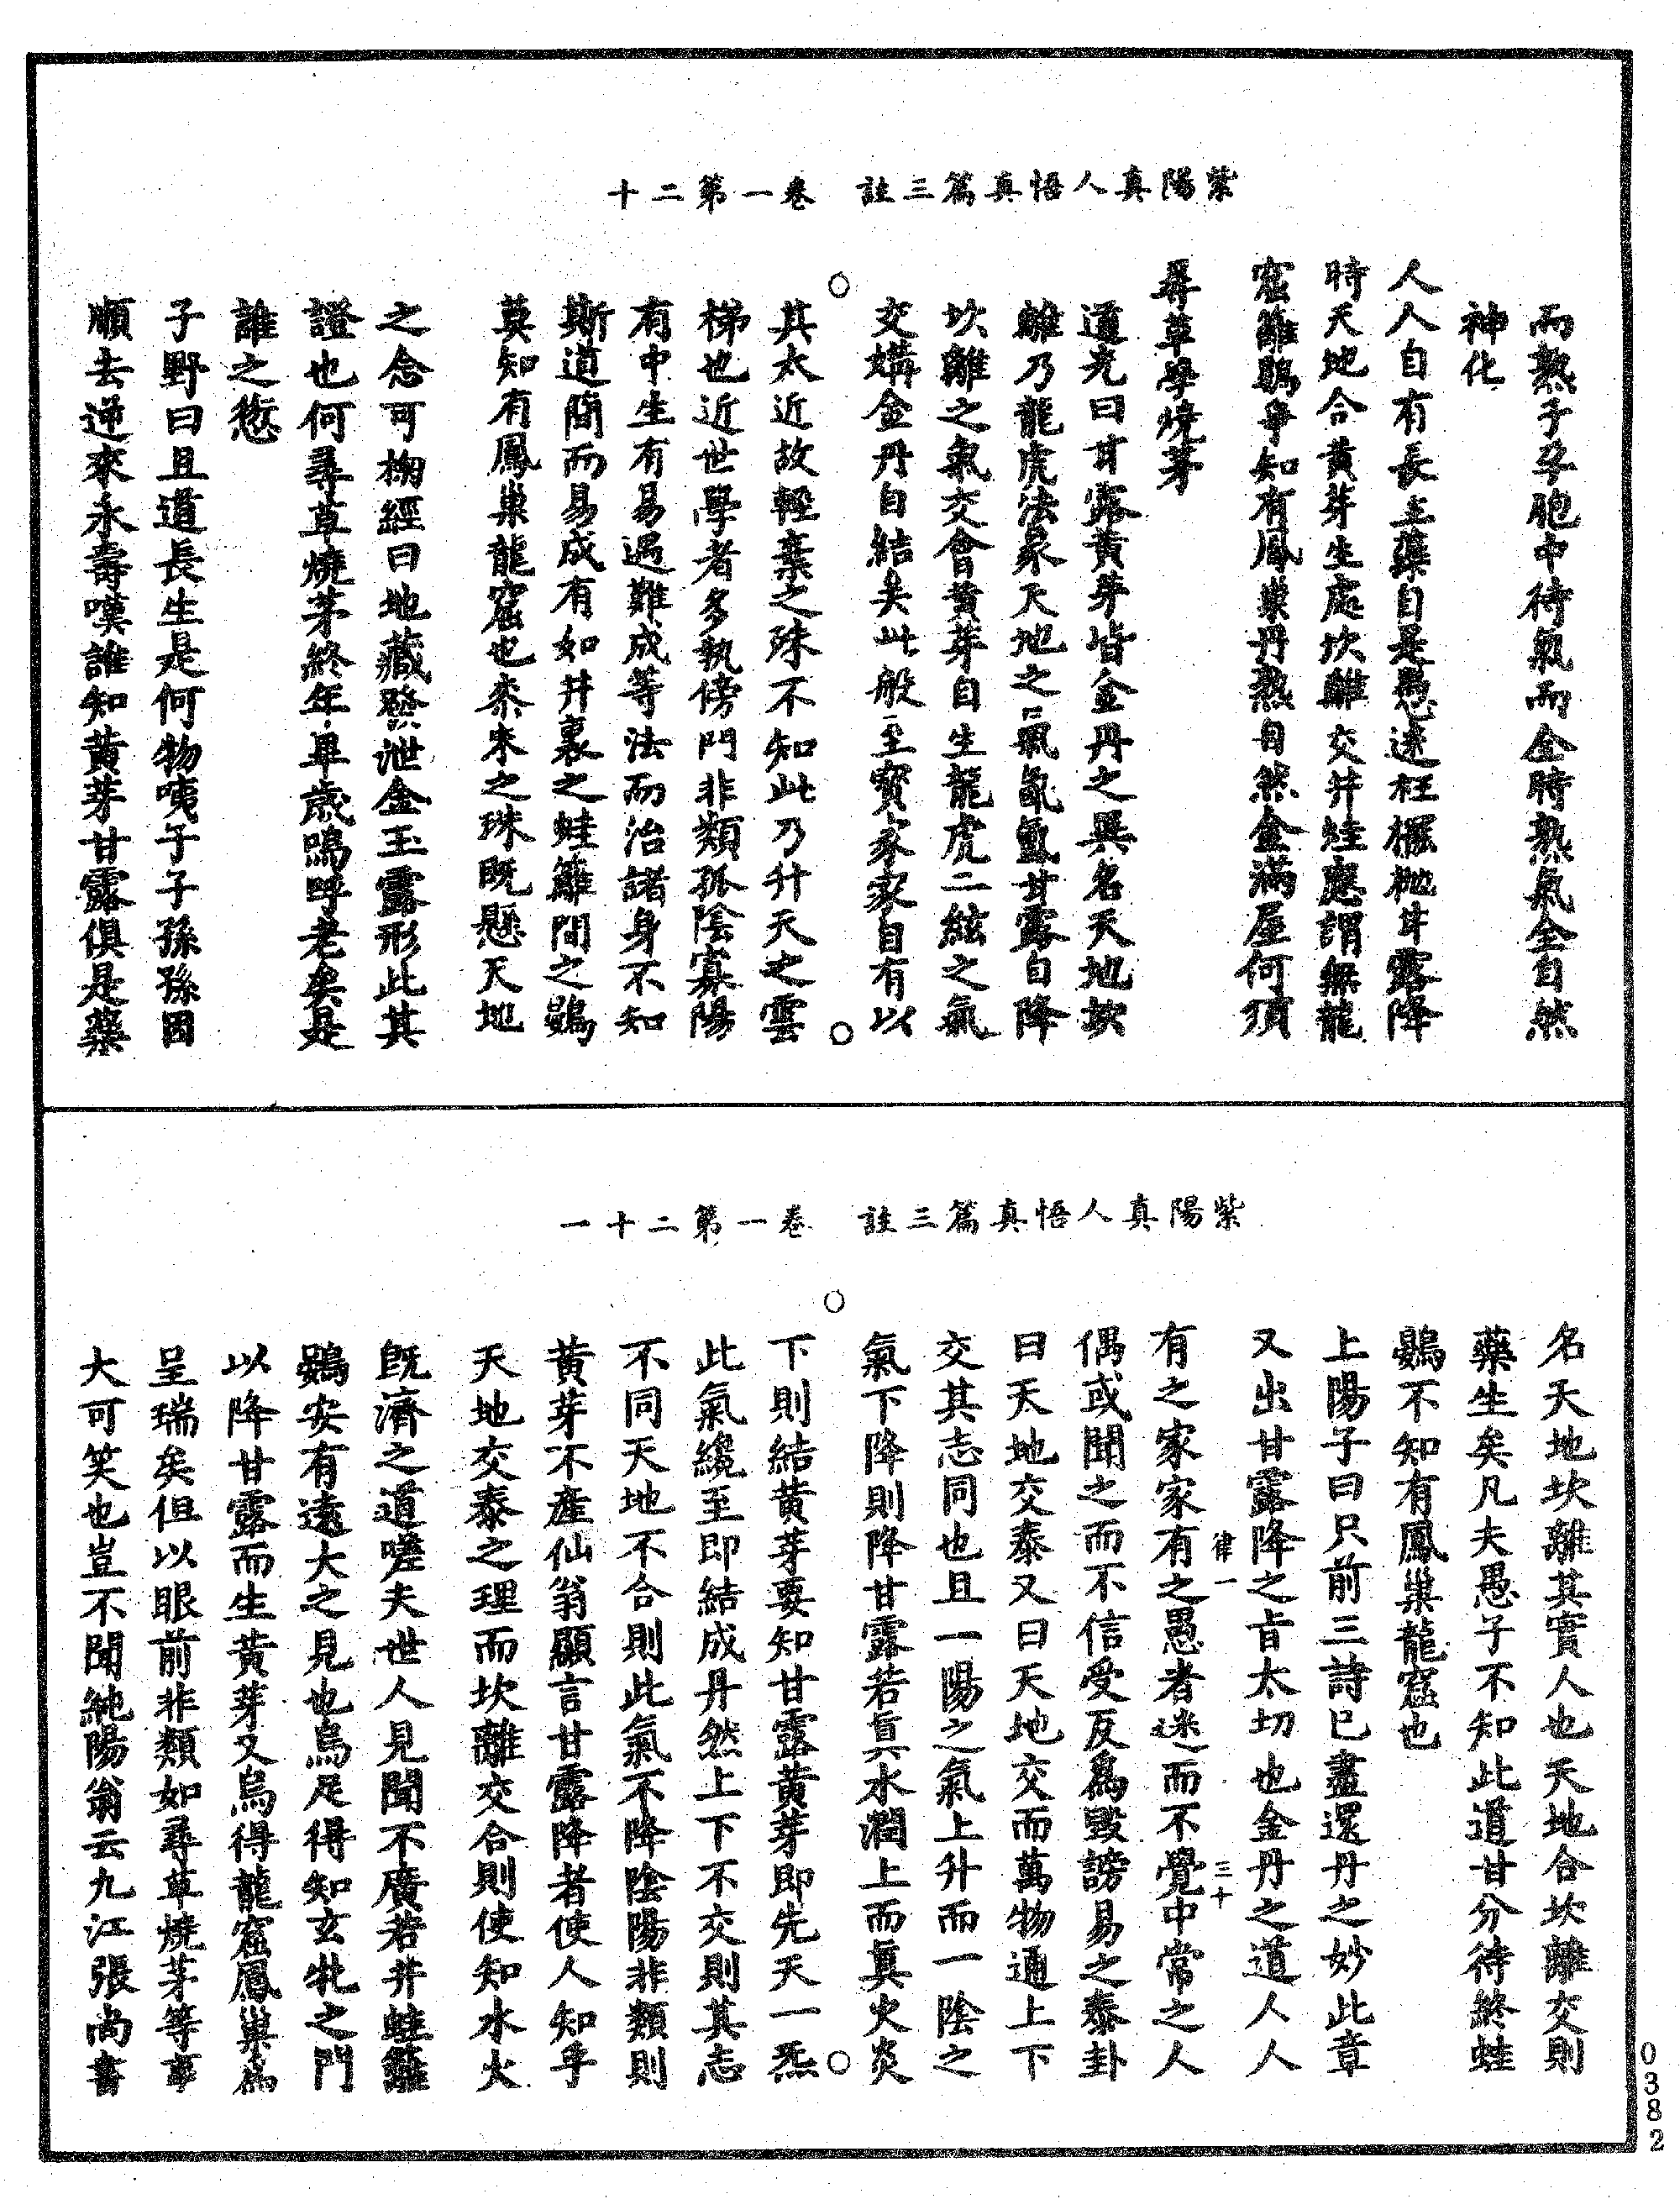 紫陽真人悟真篇三註　卷一第二十
而熟于孕胞中待氣而全時熟氣全自然
神化
人人自有長生藥自是愚迷枉擺抛甘露降
時天地合黃芽生處坎離交井蛙應謂無龍
窟籬鷃爭知有鳳巢丹熟自然金滿屋何須
尋草學燒茅
道光曰甘露黃芽皆金丹之異名天地坎
離乃龍虎法象天地之氣氤氳甘露自降
坎離之氣交會黃芽自生龍虎二絃之氣
交媾金丹自結矣此般至寶家家自有以
其太近故輕棄之殊不知此乃升天之雲
梯也近世學者多執傍門非類孤陰寡陽
有中生有易遇難成等法而治諸身不知
斯道簡而易成有如井裏之蛙籬間之鷃
莫知有鳳巢龍窟也黍米之珠既懸天地
之念可掬經曰地藏發泄金玉露形此其
證也何尋草燒茅終年卒歲嗚呼老矣是
誰之愆
子野曰且道長生是何物咦子子孫孫因
順去逆來永壽嘆誰知黃芽甘露俱是藥
紫陽真人悟真篇三註　卷一第二十一
名天地坎離其實人也天地合坎離交則
藥生矣凡夫愚子不知此道甘分待終蛙
鷃不知有鳳巢龍窟也
上陽子曰只前三詩已盡還丹之妙此章
又出甘露降之旨太切也金丹之道人人
律一　三十
有之家家有之愚者迷而不覺中常之人
偶或聞之而不信受反爲毀謗易之泰卦
曰天地交泰又曰天地交而萬物通上下
交其志同也且一陽之氣上升而一陰之
氣下降則降甘露若真水潤上而真火炎
下則結黃芽要知甘露黃芽即先天一炁
此氣纔至即結成丹然上下不交則其志
不同天地不合則此氣不降陰陽非類則
黃芽不產仙翁顯言甘露降者使人知乎
天地交泰之理而坎離交合則使知水火
既濟之道嗟夫世人見聞不廣若井蛙籬
鷃安有遠大之見也烏足得知玄牝之門
以降甘露而生黃芽又烏得龍窟鳳巢爲
呈瑞矣但以眼前非類如尋草燒茅等事
大可笑也豈不聞純陽翁云九江張尚書
0382